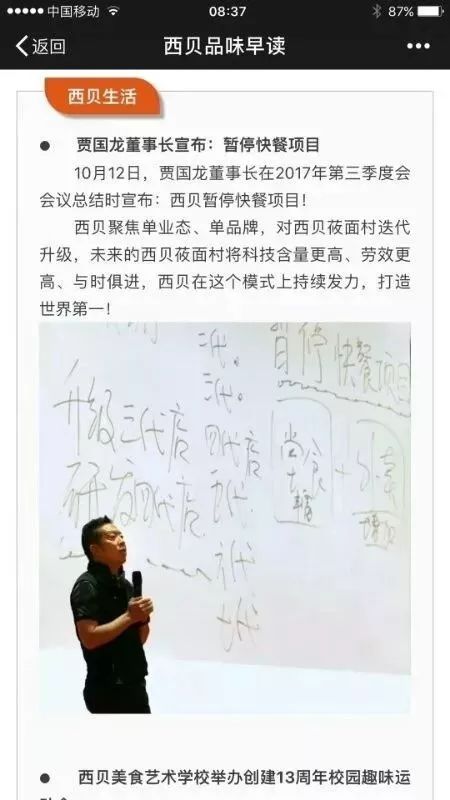 中国移动
08:37
87%
返回
西贝品味早读
西贝生活
贾国龙董事长宣布：暂停快餐项目
10月12日，贾国龙董事长在2017年第三季度会
会议总结时宣布：西贝暂停快餐项目！
西贝聚焦单业态、单品牌，对西贝莜面村迭代
升级，未来的西贝莜面村将科技含量更高、劳效更
高、与时俱进，西贝在这个模式上持续发力，打造
世界第一！
暂停快餐项目
升级三代店
研发四代店
二代。
三代。
四代店
五代
六代
七代
堂食
+外卖
西贝美食艺术学校举办创建13周年校园趣味运